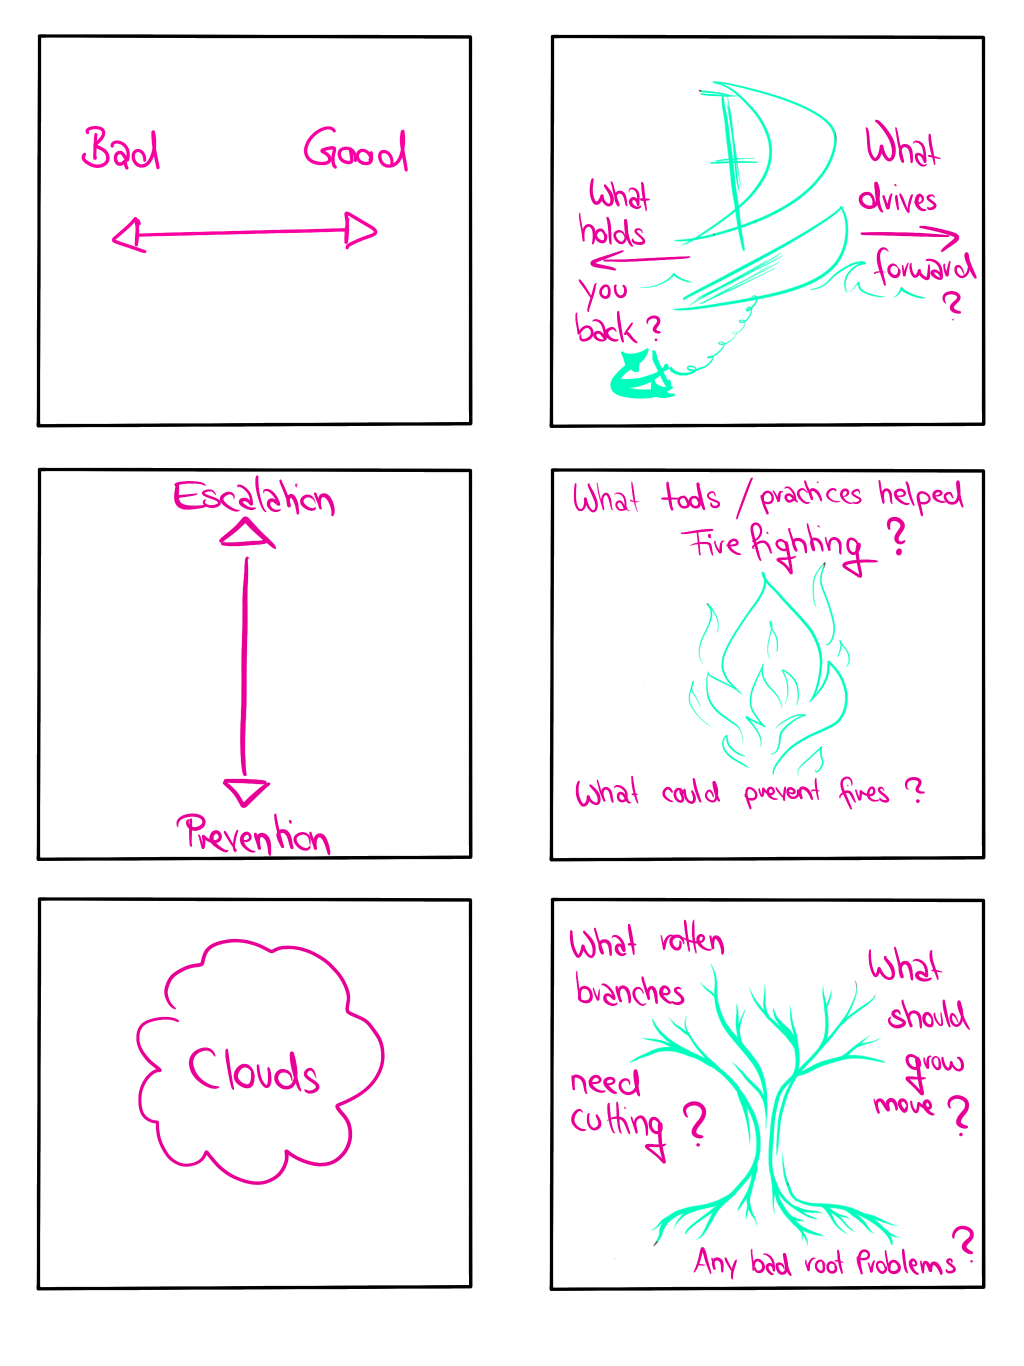 Bad Good
What
holds
you
back ?
What
drives
forward
?
Escalation
Prevention
What tools / practices helped
Fire fighting ?
What could prevent fires ?
Clouds
What rotten
branches
need
cutting ?
What
should
grow
more ?
Any bad root Problems ?